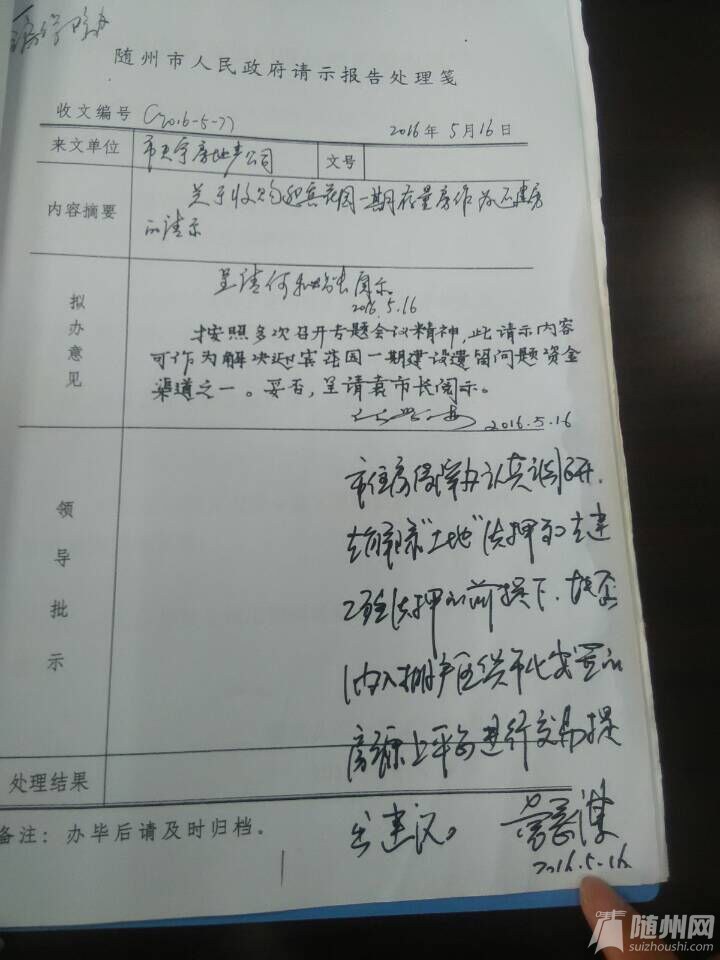 随州市人民政府请示报告处理笺
收文编号 (2016-5-77)
2016年5月16日
来文单位 市天宇房地产公司 文号
内容摘要 关于收购迎宾花园一期存量房作为还建房
的请示
拟办意见
呈请何秘书长阅示
2016.5.16
按照多次召开专题会议精神,此请示内容
可作为解决迎宾花园一期建设遗留问题资金
渠道之一。妥否,呈请袁市长阅示。
2016.5.16
领导批示
市住房保障办认真调研,
在解除"土地"抵押和在建
工程抵押的前提下,能否
纳入棚户区货币化安置的
房源上平台进行交易提
出建议。
2016.5.16
处理结果
备注:办毕后请及时归档。
随州网
suizhoushi.com